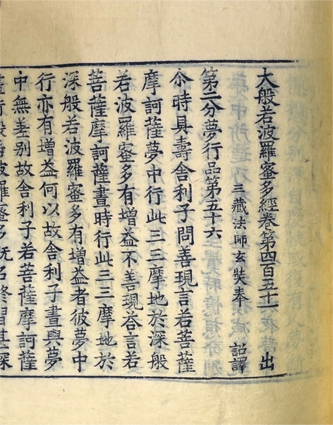 大般若波羅蜜多經卷第四百五十一 出
三藏法師玄奘奉 詔譯
第二分夢行品第五十六
尒時具壽舍利子問善現言若菩薩
摩訶薩夢中行此三三摩地於深般
若波羅蜜多有增益不善現荅言若
菩薩摩訶薩晝時行此三三摩地於
深般若波羅蜜多有增益者彼夢中
行亦有增益何以故舍利子晝與夢
中無差別故舍利子若菩薩摩訶薩